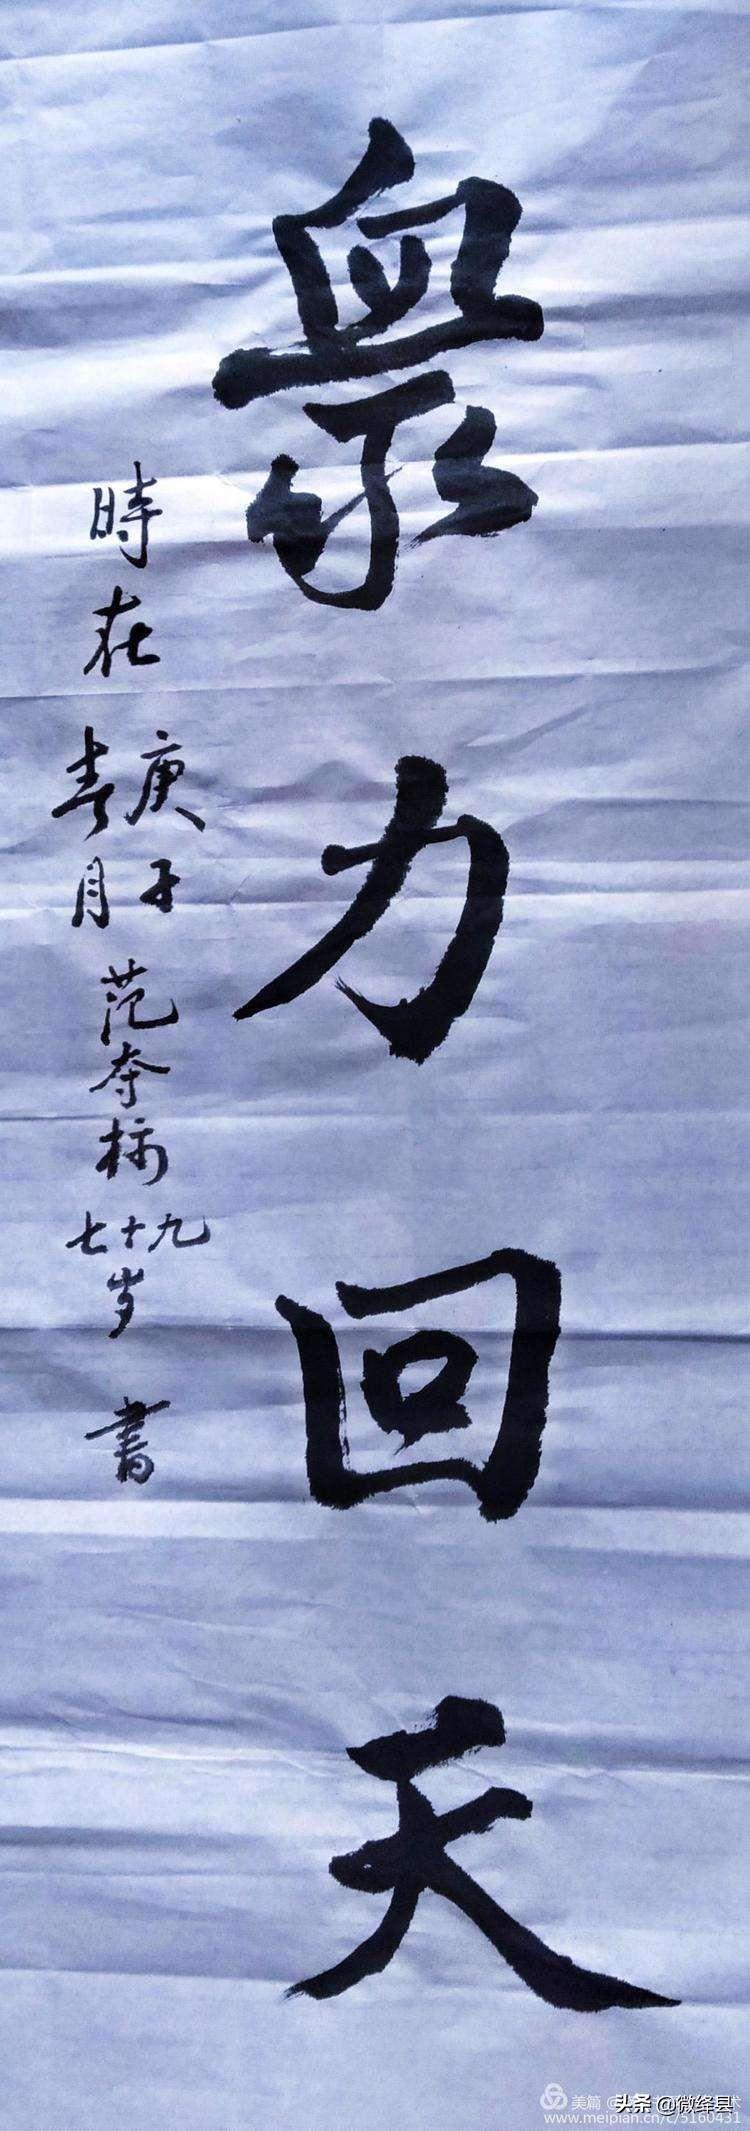 衆力回天
時在庚子春月范夺标七十九岁書
美篇
头条 @微绛县
www.meipian.cn/c/5160431